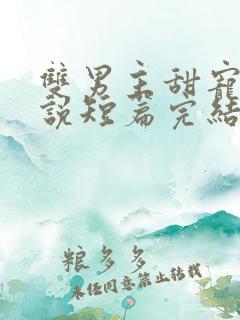 雙男主甜寵
說短篇完結
粮多多
未经同意禁止转载